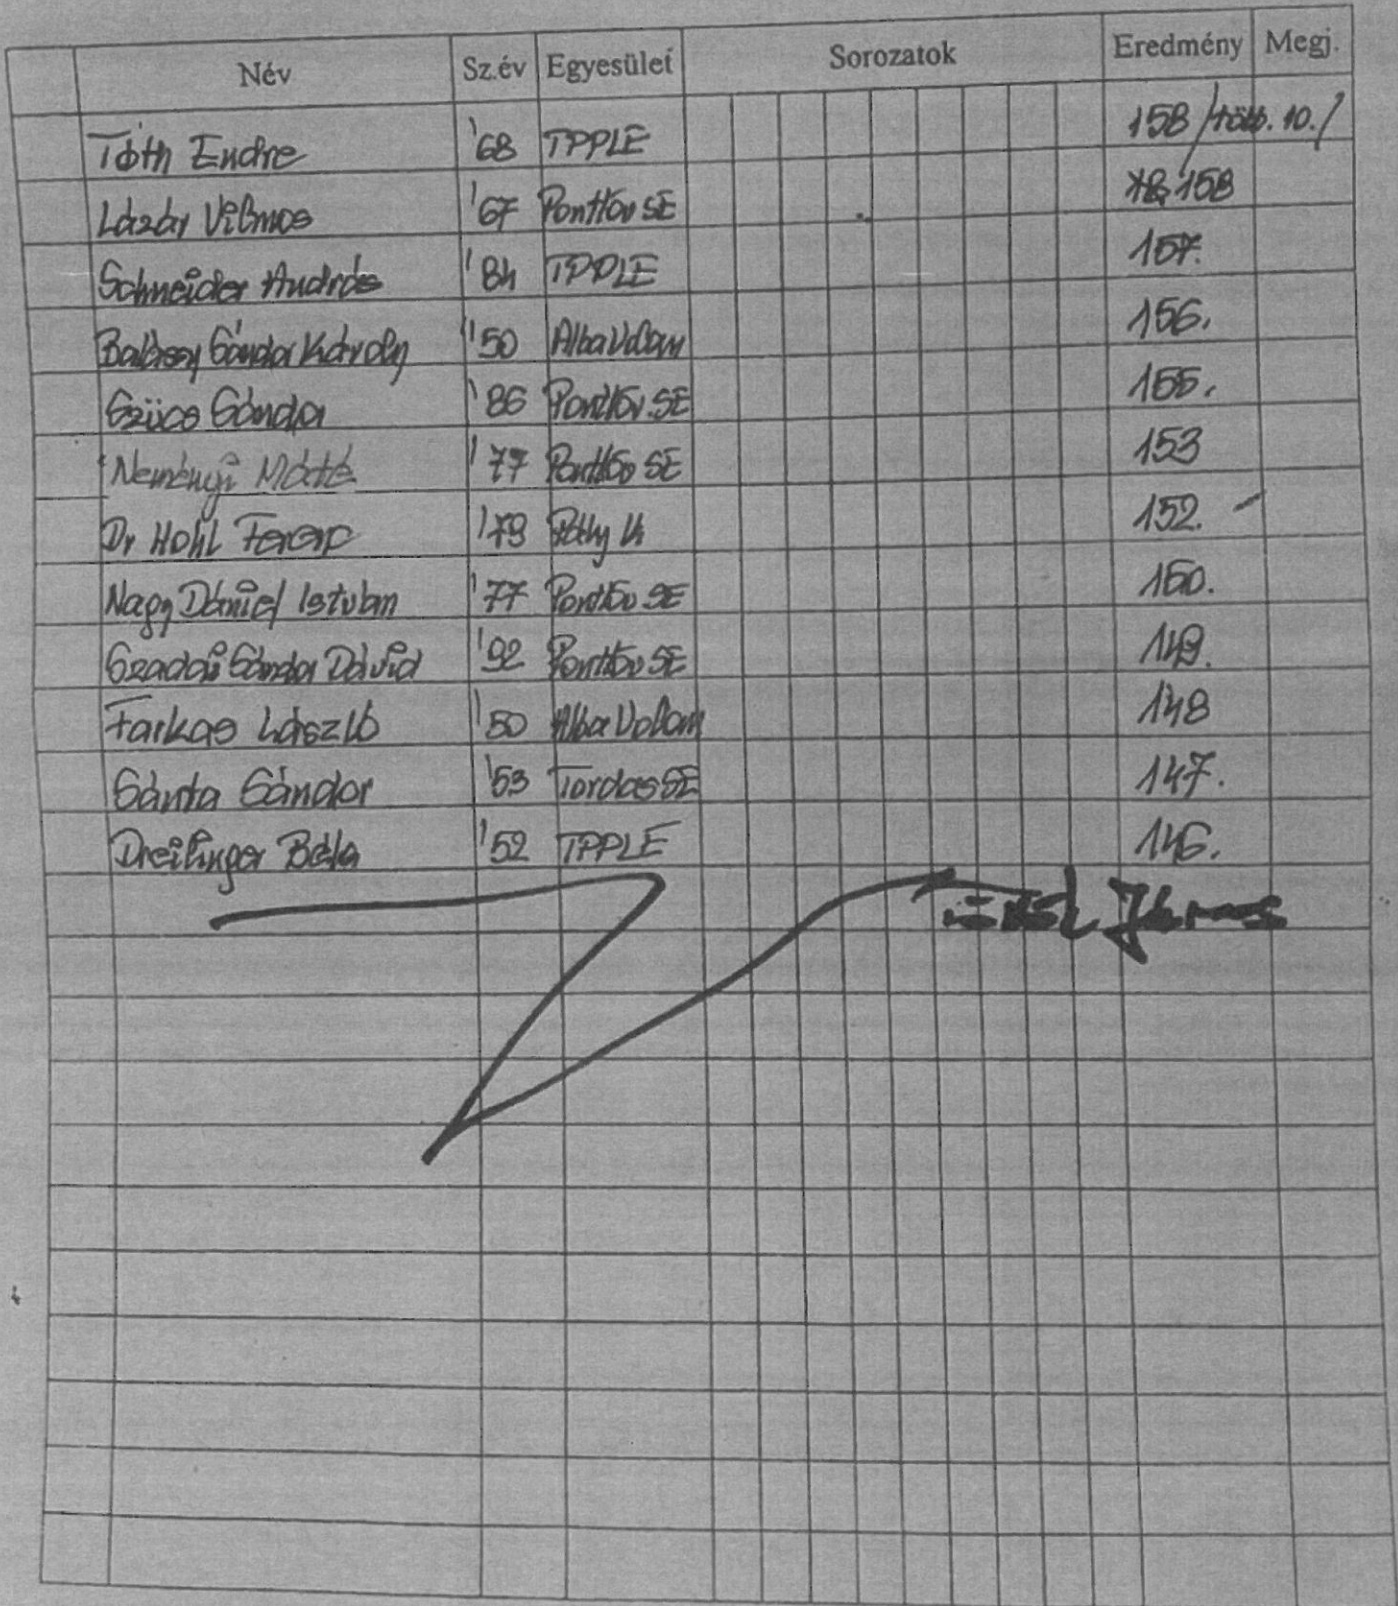 Név Sz.év Egyesület Sorozatok Eredmény Megj.
Tóth Endre '68 TPPLE 158 /több. 10./
Lázár Vilmos '67 Ponttöv SE 158
Schneider András '84 TPPLE 157.
Balássy Sándor Károly '50 Alba Volán 156.
Szücs Sándor '86 Ponttöv. SE 155.
Neményi Máté '77 Ponttöv SE 153
Dr Hohl Ferenc '79 152.
Nagy Dániel István '77 Ponttöv SE 150.
Szadai Sándor Dávid '92 Ponttöv SE 149.
Farkas László '50 Alba Volán 148
Sánta Sándor '53 Tordas SE 147.
Dreilinger Béla '52 TPPLE 146.